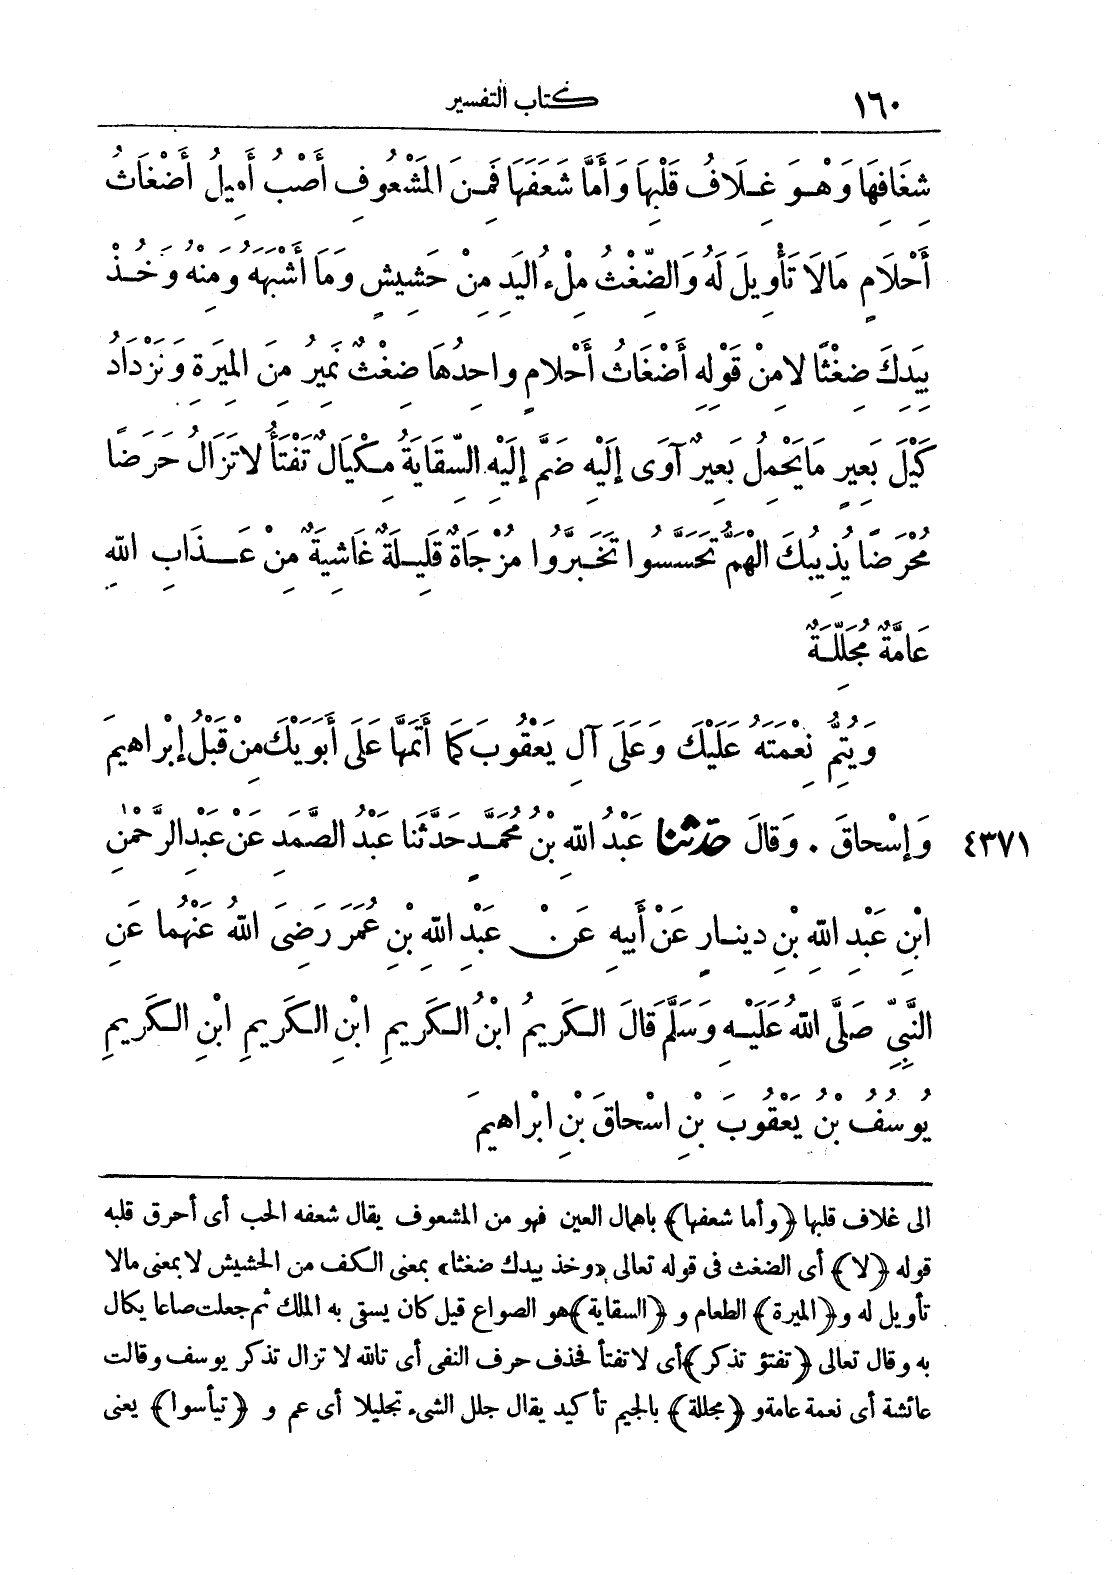 ١٦٠ كتاب التفسير
شِغَافِهَا وَهْوَ غِلَافُ قَلْبِهَا وَأَمَّا شَعَفَهَا فَمِنَ المَشْعُوفِ أَصْبُ أَمِيلُ أَضْغَاثُ
أَحْلَامٍ مَالَا تَأْوِيلَ لَهُ وَالضِّغْثُ مِلْءُ اليَدِ مِنْ حَشِيشٍ وَمَا أَشْبَهَهُ وَمِنْهُ وَخُذْ
بِيَدِكَ ضِغْثًا لا مِنْ قَوْلِهِ أَضْغَاثُ أَحْلامٍ واحِدُهَا ضِغْثٌ نَمِيرُ مِنَ المِيَرةِ وَنَزْدَادُ
كَيْلَ بَعِيرٍ مَا يَحْمِلُ بَعِيرٌ آوَى إِلَيْهِ ضَمَّ إِلَيْهِ السِّقَايَةُ مِكْيَالٌ تَفْتَأُ لا تَزَالُ حَرَضًا
مُحْرَضًا يُذِيبُكَ الْهَمُّ تَحَسَّسُوا تَخَبَّرُوا مُزْجَاةٌ قَلِيلَةٌ غَاشِيَةٌ مِنْ عَذَابِ اللهِ
عَامَّةٌ مُجَلِّلَةٌ
وَيُتِمُّ نِعْمَتَهُ عَلَيْكَ وَعَلَى آلِ يَعْقُوبَ كَمَا أَتَمَّهَا عَلَى أَبَوَيْكَ مِنْ قَبْلُ إِبْراهِيمَ
وَإِسْحاقَ . وَقالَ حدثنا عَبْدُ اللهِ بْنُ مُحَمَّدٍ حَدَّثَنا عَبْدُ الصَّمَدِ عَنْ عَبْدِ الرَّحْمٰنِ ٤٣٧١
ابْنِ عَبْدِ اللهِ بْنِ دِينارٍ عَنْ أَبِيهِ عَنْ عَبْدِ اللهِ بْنِ عُمَرَ رَضِىَ اللهُ عَنْهُما عَنِ
النَّبِيِّ صَلَّى اللهُ عَلَيْهِ وَسَلَّمَ قالَ الكَرِيمُ ابْنُ الكَرِيمِ ابْنِ الكَرِيمِ ابْنِ الكَرِيمِ
يُوسُفُ بْنُ يَعْقُوبَ بْنِ اسْحاقَ بْنِ ابْراهِيمَ
الى غلاف قلبها ﴿وأما شعفها﴾ باهمال العين فهو من المشعوف يقال شعفه الحب أى أحرق قلبه
قوله ﴿لا﴾ أى الضغث فى قوله تعالى «وخذ بيدك ضغثا» بمعنى الكف من الحشيش لا بمعنى مالا
تأويل له و﴿الميرة﴾ الطعام و ﴿السقاية﴾ هو الصواع قيل كان يسقى به الملك ثم جعلت صاعا يكال
به وقال تعالى ﴿تفتؤ تذكر﴾ أى لا تفتأ فحذف حرف النفى أى تالله لا تزال تذكر يوسف وقالت
عائشة أى نعمة عامة و ﴿مجللة﴾ بالجيم تأكيد يقال جلل الشىء تجليلا أى عم و ﴿تيأسوا﴾ يعنى